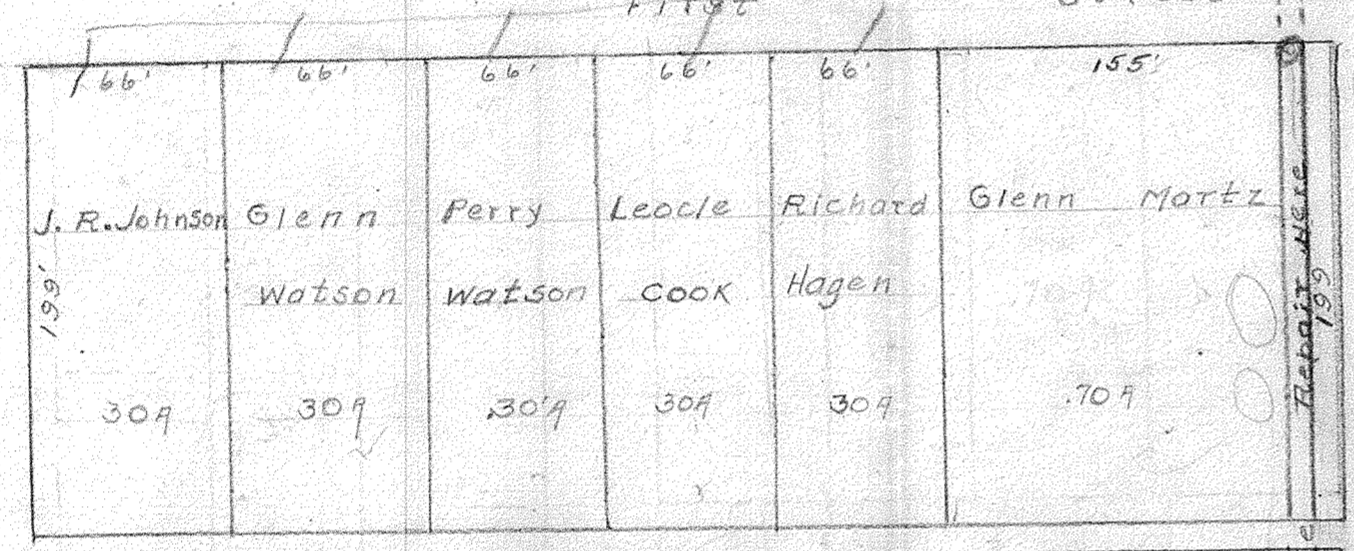 First
66' 66' 66' 66' 66' 155'
J. R. Johnson
199'
30A
Glenn
Watson
30A
Perry
Watson
.30'A
Leocle
Cook
30A
Richard
Hagen
30A
Glenn Martz
.70A
Repair Here
199